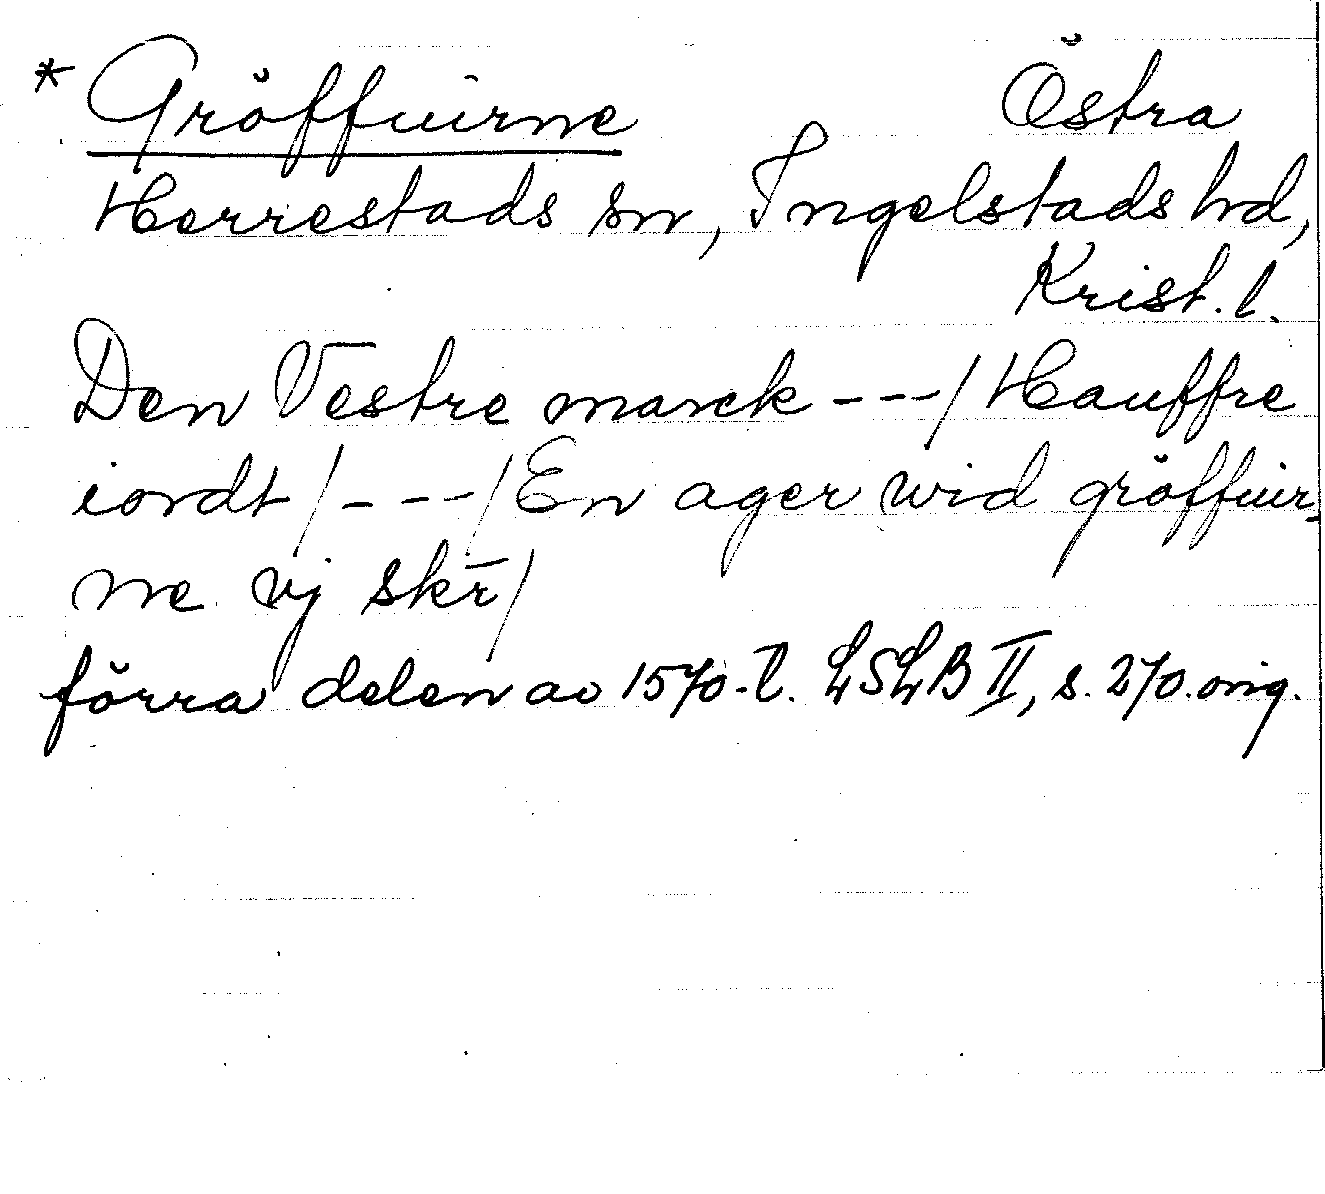 * Gröffuirne Östra
Herrestads sn, Ingelstads hd,
Krist. l.
Den Vestre marck ---/ Hauffre
iordt /---/ En ager wid gröffuir-
ne vj skr̄/
förra delen av 1570-t. LSLB II, s. 270. orig.